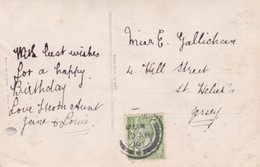 With best wishes
for a happy
Birthday
Love from Aunt
Jane & Louie
Miss E. Gallichan
4. Hill Street
St. Helier's
Jersey